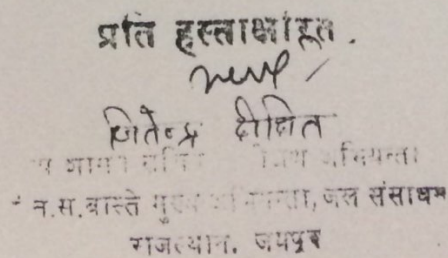 प्रति हस्ताक्षरित.
जितेन्द्र दीक्षित
अभियन्ता
न.स.वास्ते मुख्य अभियन्ता, जल संसाधन
राजस्थान, जयपुर